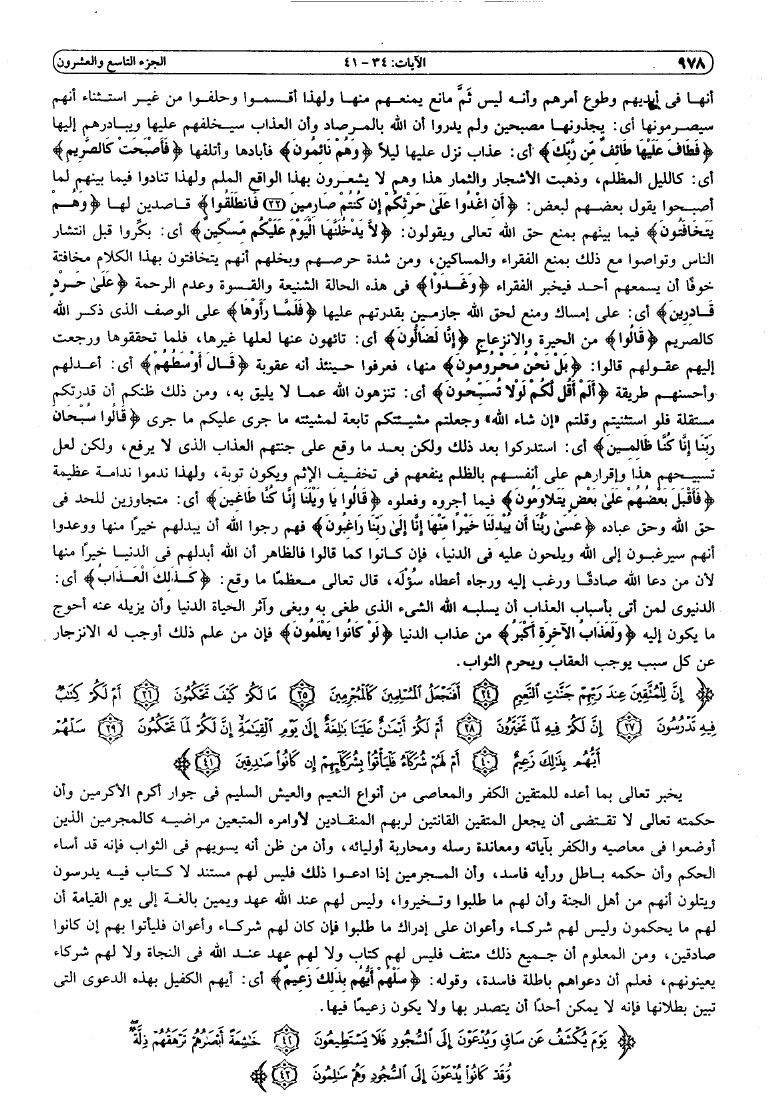 ٩٧٨ الآيات: ٣٤ - ٤١ الجزء التاسع والعشرون
أنها فى أيديهم وطوع أمرهم وأنه ليس ثَمَّ مانع يمنعهم منها ولهذا أقسموا وحلفوا من غير استثناء أنهم
سيصرمونها أى: يجذونها مصبحين ولم يدروا أن الله بالمرصاد وأن العذاب سيخلفهم عليها ويبادرهم إليها
﴿فَطَافَ عَلَيْهَا طَائِفٌ مِّن رَّبِّكَ﴾ أى: عذاب نزل عليها ليلاً ﴿وَهُمْ نَائِمُونَ﴾ فأبادها وأتلفها ﴿فَأَصْبَحَتْ كَالصَّرِيمِ﴾
أى: كالليل المظلم، وذهبت الأشجار والثمار هذا وهم لا يشعرون بهذا الواقع الملم ولهذا تنادوا فيما بينهم لما
أصبحوا يقول بعضهم لبعض: ﴿أَنِ اغْدُوا عَلَىٰ حَرْثِكُمْ إِن كُنتُمْ صَارِمِينَ (٢٢) فَانطَلَقُوا﴾ قاصدين لها ﴿وَهُمْ
يَتَخَافَتُونَ﴾ فيما بينهم بمنع حق الله تعالى ويقولون: ﴿لَا يَدْخُلَنَّهَا الْيَوْمَ عَلَيْكُم مِّسْكِينٌ﴾ أى: بكِّروا قبل انتشار
الناس وتواصوا مع ذلك بمنع الفقراء والمساكين، ومن شدة حرصهم وبخلهم أنهم يتخافتون بهذا الكلام مخافتة
خوفًا أن يسمعهم أحد فيخبر الفقراء ﴿وَغَدَوْا﴾ فى هذه الحالة الشنيعة والقسوة وعدم الرحمة ﴿عَلَىٰ حَرْدٍ
قَادِرِينَ﴾ أى: على إمساك ومنع لحق الله جازمين بقدرتهم عليها ﴿فَلَمَّا رَأَوْهَا﴾ على الوصف الذى ذكر الله
كالصريم ﴿قَالُوا﴾ من الحيرة والانزعاج ﴿إِنَّا لَضَالُّونَ﴾ أى: تائهون عنها لعلها غيرها، فلما تحققوها ورجعت
إليهم عقولهم قالوا: ﴿بَلْ نَحْنُ مَحْرُومُونَ﴾ منها، فعرفوا حينئذ أنه عقوبة ﴿قَالَ أَوْسَطُهُمْ﴾ أى: أعدلهم
وأحسنهم طريقة ﴿أَلَمْ أَقُل لَّكُمْ لَوْلَا تُسَبِّحُونَ﴾ أى: تنزهون الله عما لا يليق به، ومن ذلك ظنكم أن قدرتكم
مستقلة فلو استثنيتم وقلتم «إن شاء الله» وجعلتم مشيئتكم تابعة لمشيئته ما جرى عليكم ما جرى ﴿قَالُوا سُبْحَانَ
رَبِّنَا إِنَّا كُنَّا ظَالِمِينَ﴾ أى: استدركوا بعد ذلك ولكن بعد ما وقع على جنتهم العذاب الذى لا يرفع، ولكن لعل
تسبيحهم هذا وإقرارهم على أنفسهم بالظلم ينفعهم فى تخفيف الإثم ويكون توبة، ولهذا ندموا ندامة عظيمة
﴿فَأَقْبَلَ بَعْضُهُمْ عَلَىٰ بَعْضٍ يَتَلَاوَمُونَ﴾ فيما أجروه وفعلوه ﴿قَالُوا يَا وَيْلَنَا إِنَّا كُنَّا طَاغِينَ﴾ أى: متجاوزين للحد فى
حق الله وحق عباده ﴿عَسَىٰ رَبُّنَا أَن يُبْدِلَنَا خَيْرًا مِّنْهَا إِنَّا إِلَىٰ رَبِّنَا رَاغِبُونَ﴾ فهم رجوا الله أن يبدلهم خيرًا منها ووعدوا
أنهم سيرغبون إلى الله ويلحون عليه فى الدنيا، فإن كانوا كما قالوا فالظاهر أن الله أبدلهم فى الدنيا خيرًا منها
لأن من دعا الله صادقًا ورغب إليه ورجاه أعطاه سُؤْلَه، قال تعالى معظمًا ما وقع: ﴿كَذَٰلِكَ الْعَذَابُ﴾ أى:
الدنيوى لمن أتى بأسباب العذاب أن يسلبه الله الشىء الذى طغى به وبغى وآثر الحياة الدنيا وأن يزيله عنه أحوج
ما يكون إليه ﴿وَلَعَذَابُ الْآخِرَةِ أَكْبَرُ﴾ من عذاب الدنيا ﴿لَوْ كَانُوا يَعْلَمُونَ﴾ فإن من علم ذلك أوجب له الانزجار
عن كل سبب يوجب العقاب ويحرم الثواب.
﴿ إِنَّ لِلْمُتَّقِينَ عِندَ رَبِّهِمْ جَنَّٰتِ ٱلنَّعِيمِ (٣٤) أَفَنَجْعَلُ ٱلْمُسْلِمِينَ كَٱلْمُجْرِمِينَ (٣٥) مَا لَكُمْ كَيْفَ تَحْكُمُونَ (٣٦) أَمْ لَكُمْ كِتَٰبٌ
فِيهِ تَدْرُسُونَ (٣٧) إِنَّ لَكُمْ فِيهِ لَمَا تَخَيَّرُونَ (٣٨) أَمْ لَكُمْ أَيْمَٰنٌ عَلَيْنَا بَٰلِغَةٌ إِلَىٰ يَوْمِ ٱلْقِيَٰمَةِ إِنَّ لَكُمْ لَمَا تَحْكُمُونَ (٣٩) سَلْهُمْ
أَيُّهُم بِذَٰلِكَ زَعِيمٌ (٤٠) أَمْ لَهُمْ شُرَكَآءُ فَلْيَأْتُوا۟ بِشُرَكَآئِهِمْ إِن كَانُوا۟ صَٰدِقِينَ (٤١) ﴾
يخبر تعالى بما أعده للمتقين الكفر والمعاصى من أنواع النعيم والعيش السليم فى جوار أكرم الأكرمين وأن
حكمته تعالى لا تقتضى أن يجعل المتقين القانتين لربهم المنقادين لأوامره المتبعين مراضيه كالمجرمين الذين
أوضعوا فى معاصيه والكفر بآياته ومعاندة رسله ومحاربة أوليائه، وأن من ظن أنه يسويهم فى الثواب فإنه قد أساء
الحكم وأن حكمه باطل ورأيه فاسد، وأن المجرمين إذا ادعوا ذلك فليس لهم مستند لا كتاب فيه يدرسون
ويتلون أنهم من أهل الجنة وأن لهم ما طلبوا وتخيروا، وليس لهم عند الله عهد ويمين بالغة إلى يوم القيامة أن
لهم ما يحكمون وليس لهم شركاء وأعوان على إدراك ما طلبوا فإن كان لهم شركاء وأعوان فليأتوا بهم إن كانوا
صادقين، ومن المعلوم أن جميع ذلك منتف فليس لهم كتاب ولا لهم عهد عند الله فى النجاة ولا لهم شركاء
يعينونهم، فعلم أن دعواهم باطلة فاسدة، وقوله: ﴿سَلْهُمْ أَيُّهُم بِذَٰلِكَ زَعِيمٌ﴾ أى: أيهم الكفيل بهذه الدعوى التى
تبين بطلانها فإنه لا يمكن أحدًا أن يتصدر بها ولا يكون زعيمًا فيها.
﴿ يَوْمَ يُكْشَفُ عَن سَاقٍ وَيُدْعَوْنَ إِلَى ٱلسُّجُودِ فَلَا يَسْتَطِيعُونَ (٤٢) خَٰشِعَةً أَبْصَٰرُهُمْ تَرْهَقُهُمْ ذِلَّةٌ
وَقَدْ كَانُوا۟ يُدْعَوْنَ إِلَى ٱلسُّجُودِ وَهُمْ سَٰلِمُونَ (٤٣) ﴾